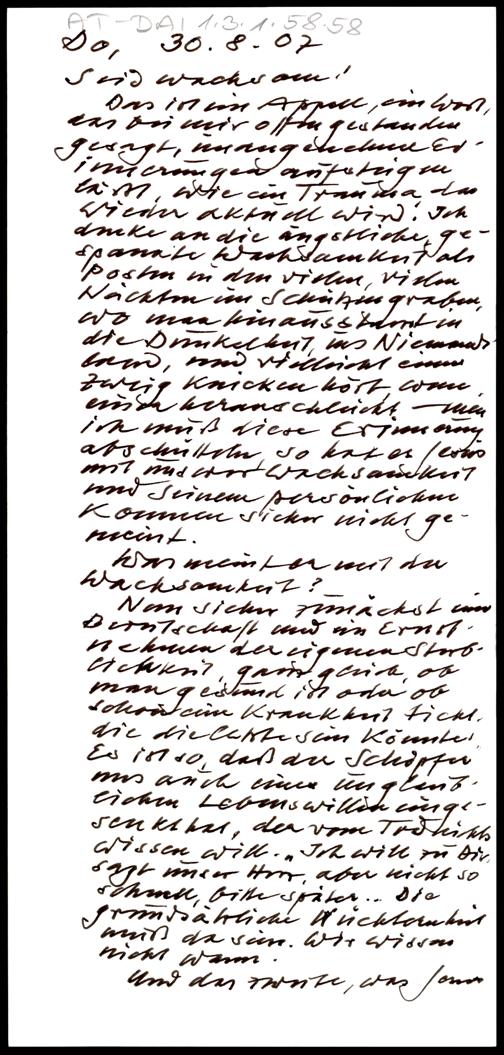 AT-DAI 1.3.1.58.58
Do, 30.8.07
Seid wachsam!
Das ist ein Appell, ein Wort,
das bei mir offen gestanden
gesagt, unangenehme Er-
innerungen aufsteigen
läßt, wie ein Trauma, das
wieder aktuell wird. Ich
denke an die ängstliche, ge-
spannte Wachsamkeit als
Posten in den vielen, vielen
Nächten im Schützengraben,
wo man hinausstarrt in
die Dunkelheit, ins Niemands-
land, und vielleicht einen
Zweig knicken hört, wenn
einer heranschleicht – nein
ich muß diese Erinnerung
abschütteln, so hat es Jesus
mit unserer Wachsamkeit
und seinem persönlichen
Kommen sicher nicht ge-
meint.
Was meint er mit der
Wachsamkeit?
Nun sicher zunächst eine
Bereitschaft und ein Ernst-
nehmen der eigenen Sterb-
lichkeit, ganz gleich, ob
man gesund ist oder ob
schon eine Krankheit tickt,
die die letzte sein könnte.
Es ist so, daß der Schöpfer
uns auch einen unglaub-
lichen Lebenswillen einge-
senkt hat, der vom Tod nichts
wissen will. „Ich will zu Dir,
sagt unser Herr, aber nicht so
schnell, bitte später... Die
grundsätzliche Nüchternheit
muß da sein. Wir wissen
nicht wann.
Und das zweite, was Jesus